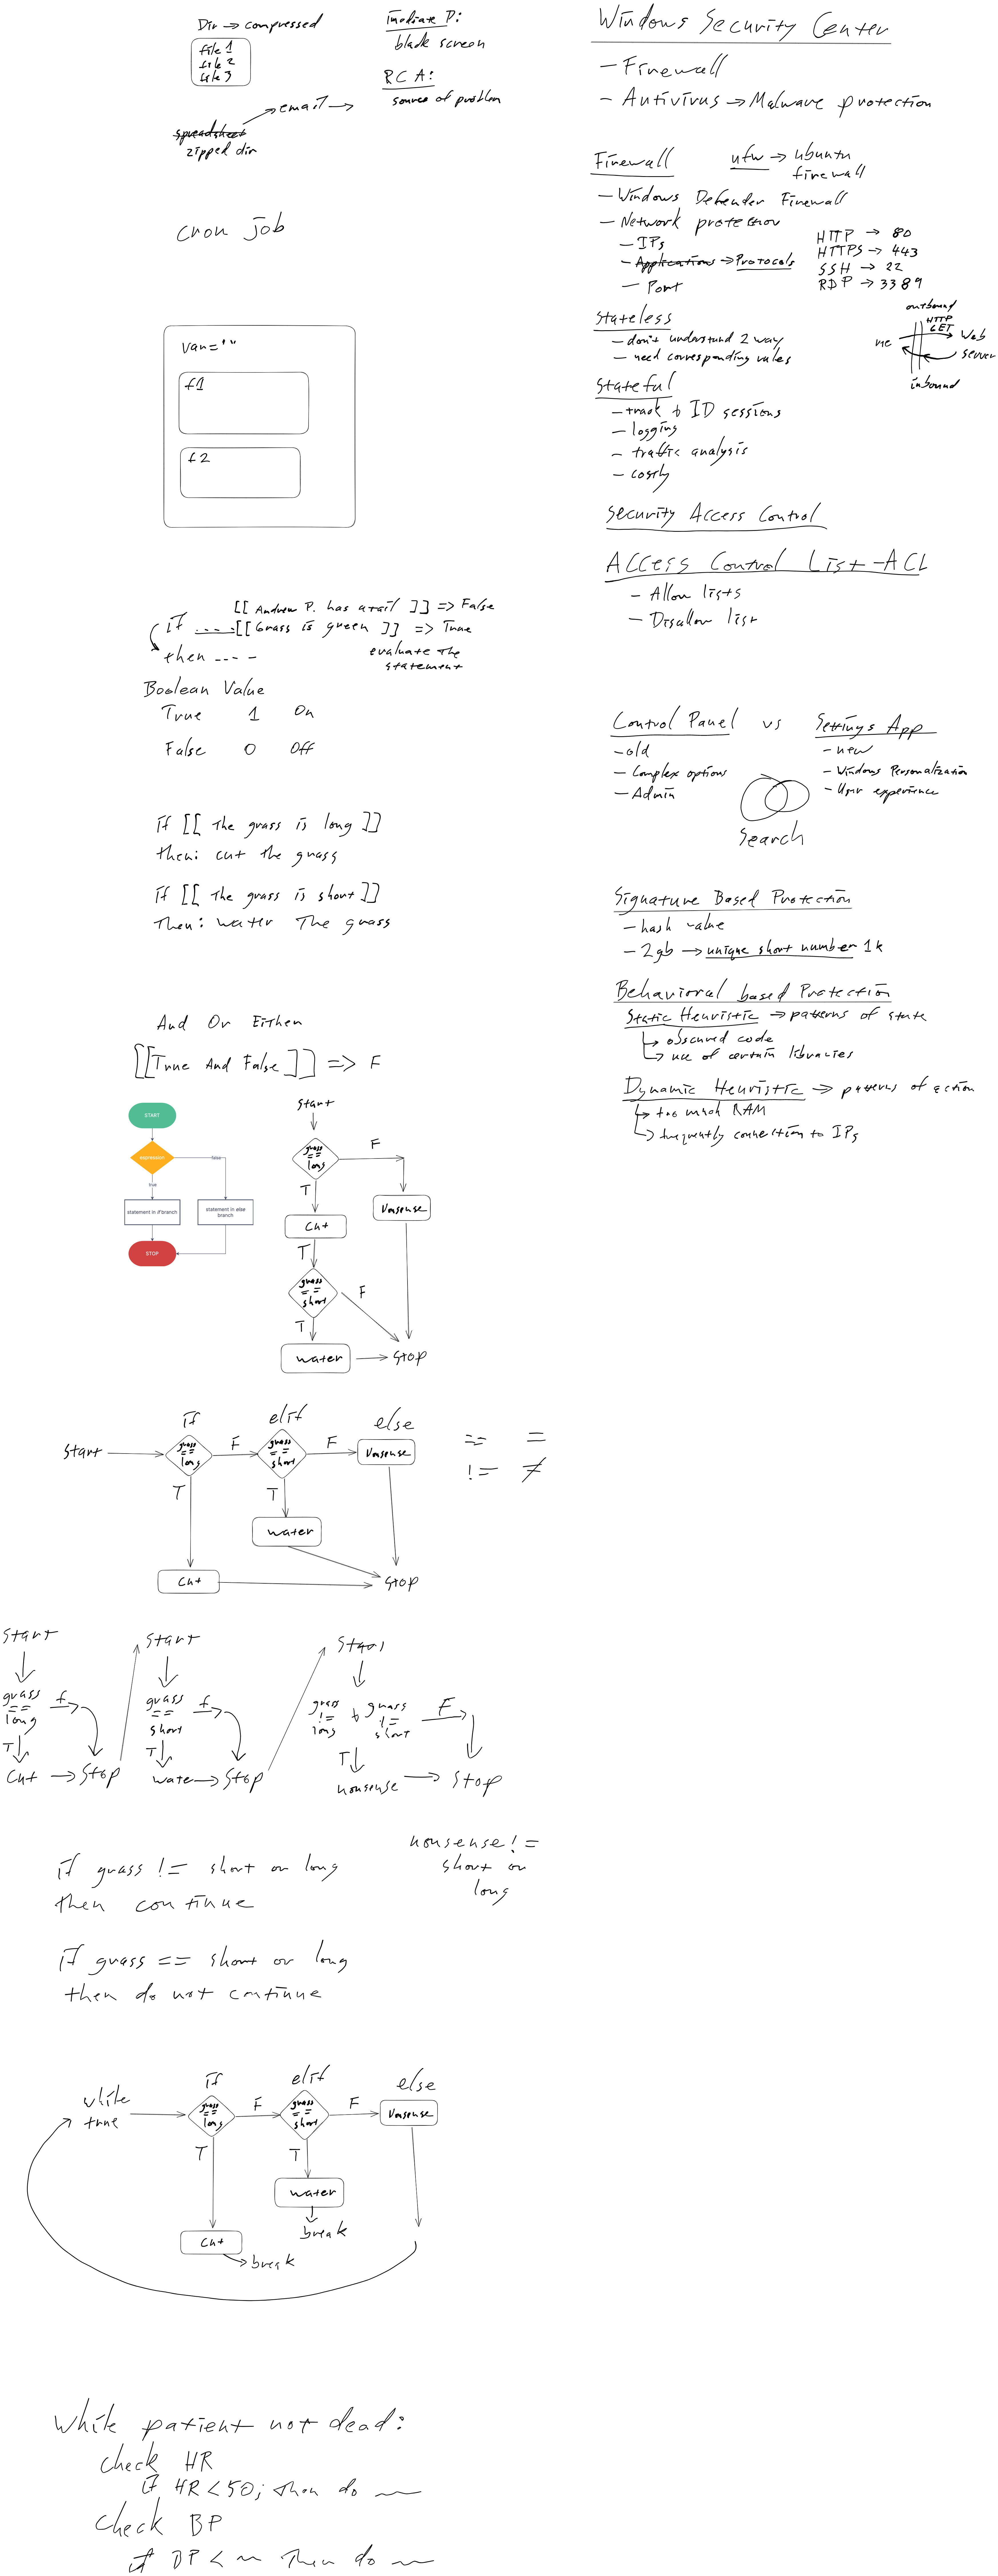 Dir → compressed
file 1
file 2
file 3
→ email →
spreadsheet
zipped dir
imediate P:
black screen
RCA:
source of problem
cron job
Var=""
f1
f2
[[ Andrew P. has avail ]] => False
if ..... [[ Grass is green ]] => True
then ....
evaluate the
statement
Boolean Value
True 1 On
False 0 Off
if [[ the grass is long ]]
then: cut the grass
if [[ the grass is short ]]
Then: water The grass
And Or Either
[[True And False]] => F
START
expression
false
true
statement in if branch
statement in else
branch
STOP
Start
grass
==
long
F
T
Nonsense
Cut
T
grass
==
short
F
T
water
Stop
if
elif
else
Start
grass
==
long
F
grass
==
short
F
Nonsense
T
T
water
Cut
Stop
== =
!= ≠
Start
grass
==
long
f
T
Cut → Stop
Start
grass
==
short
f
T
wate → Stop
Start
grass
!=
long
&
grass
!=
short
F
T
nonsense → Stop
if grass != short or long
then continue
nonsense !=
short or
long
if grass == short or long
then do not continue
while
true
if
elif
else
grass
==
long
F
grass
==
short
F
Nonsense
T
T
water
break
Cut
break
While patient not dead:
check HR
if HR < 50; then do
check BP
if BP < Then do
Windows Security Center
- Firewall
- Antivirus → Malware protection
Firewall
ufw → ubuntu
firewall
- Windows Defender Firewall
- Network protection
- IPs
- Applications → Protocols
- Port
HTTP → 80
HTTPS → 443
SSH → 22
RDP → 3389
Stateless
- don't understand 2 way
- need corresponding rules
outbound
HTTP
GET
me
Web
server
inbound
Stateful
- track & ID sessions
- logging
- traffic analysis
- costly
Security Access Control
Access Control List - ACL
- Allow lists
- Disallow list
Control Panel vs Settings App
- old
- Complex options
- Admin
- new
- Windows Personalization
- User experience
Search
Signature Based Protection
- hash value
- 2gb → unique short number 1k
Behavioral based Protection
Static Heuristic → patterns of state
↳ obscured code
↳ use of certain libraries
Dynamic Heuristic → patterns of action
↳ too much RAM
↳ frequently connection to IPs